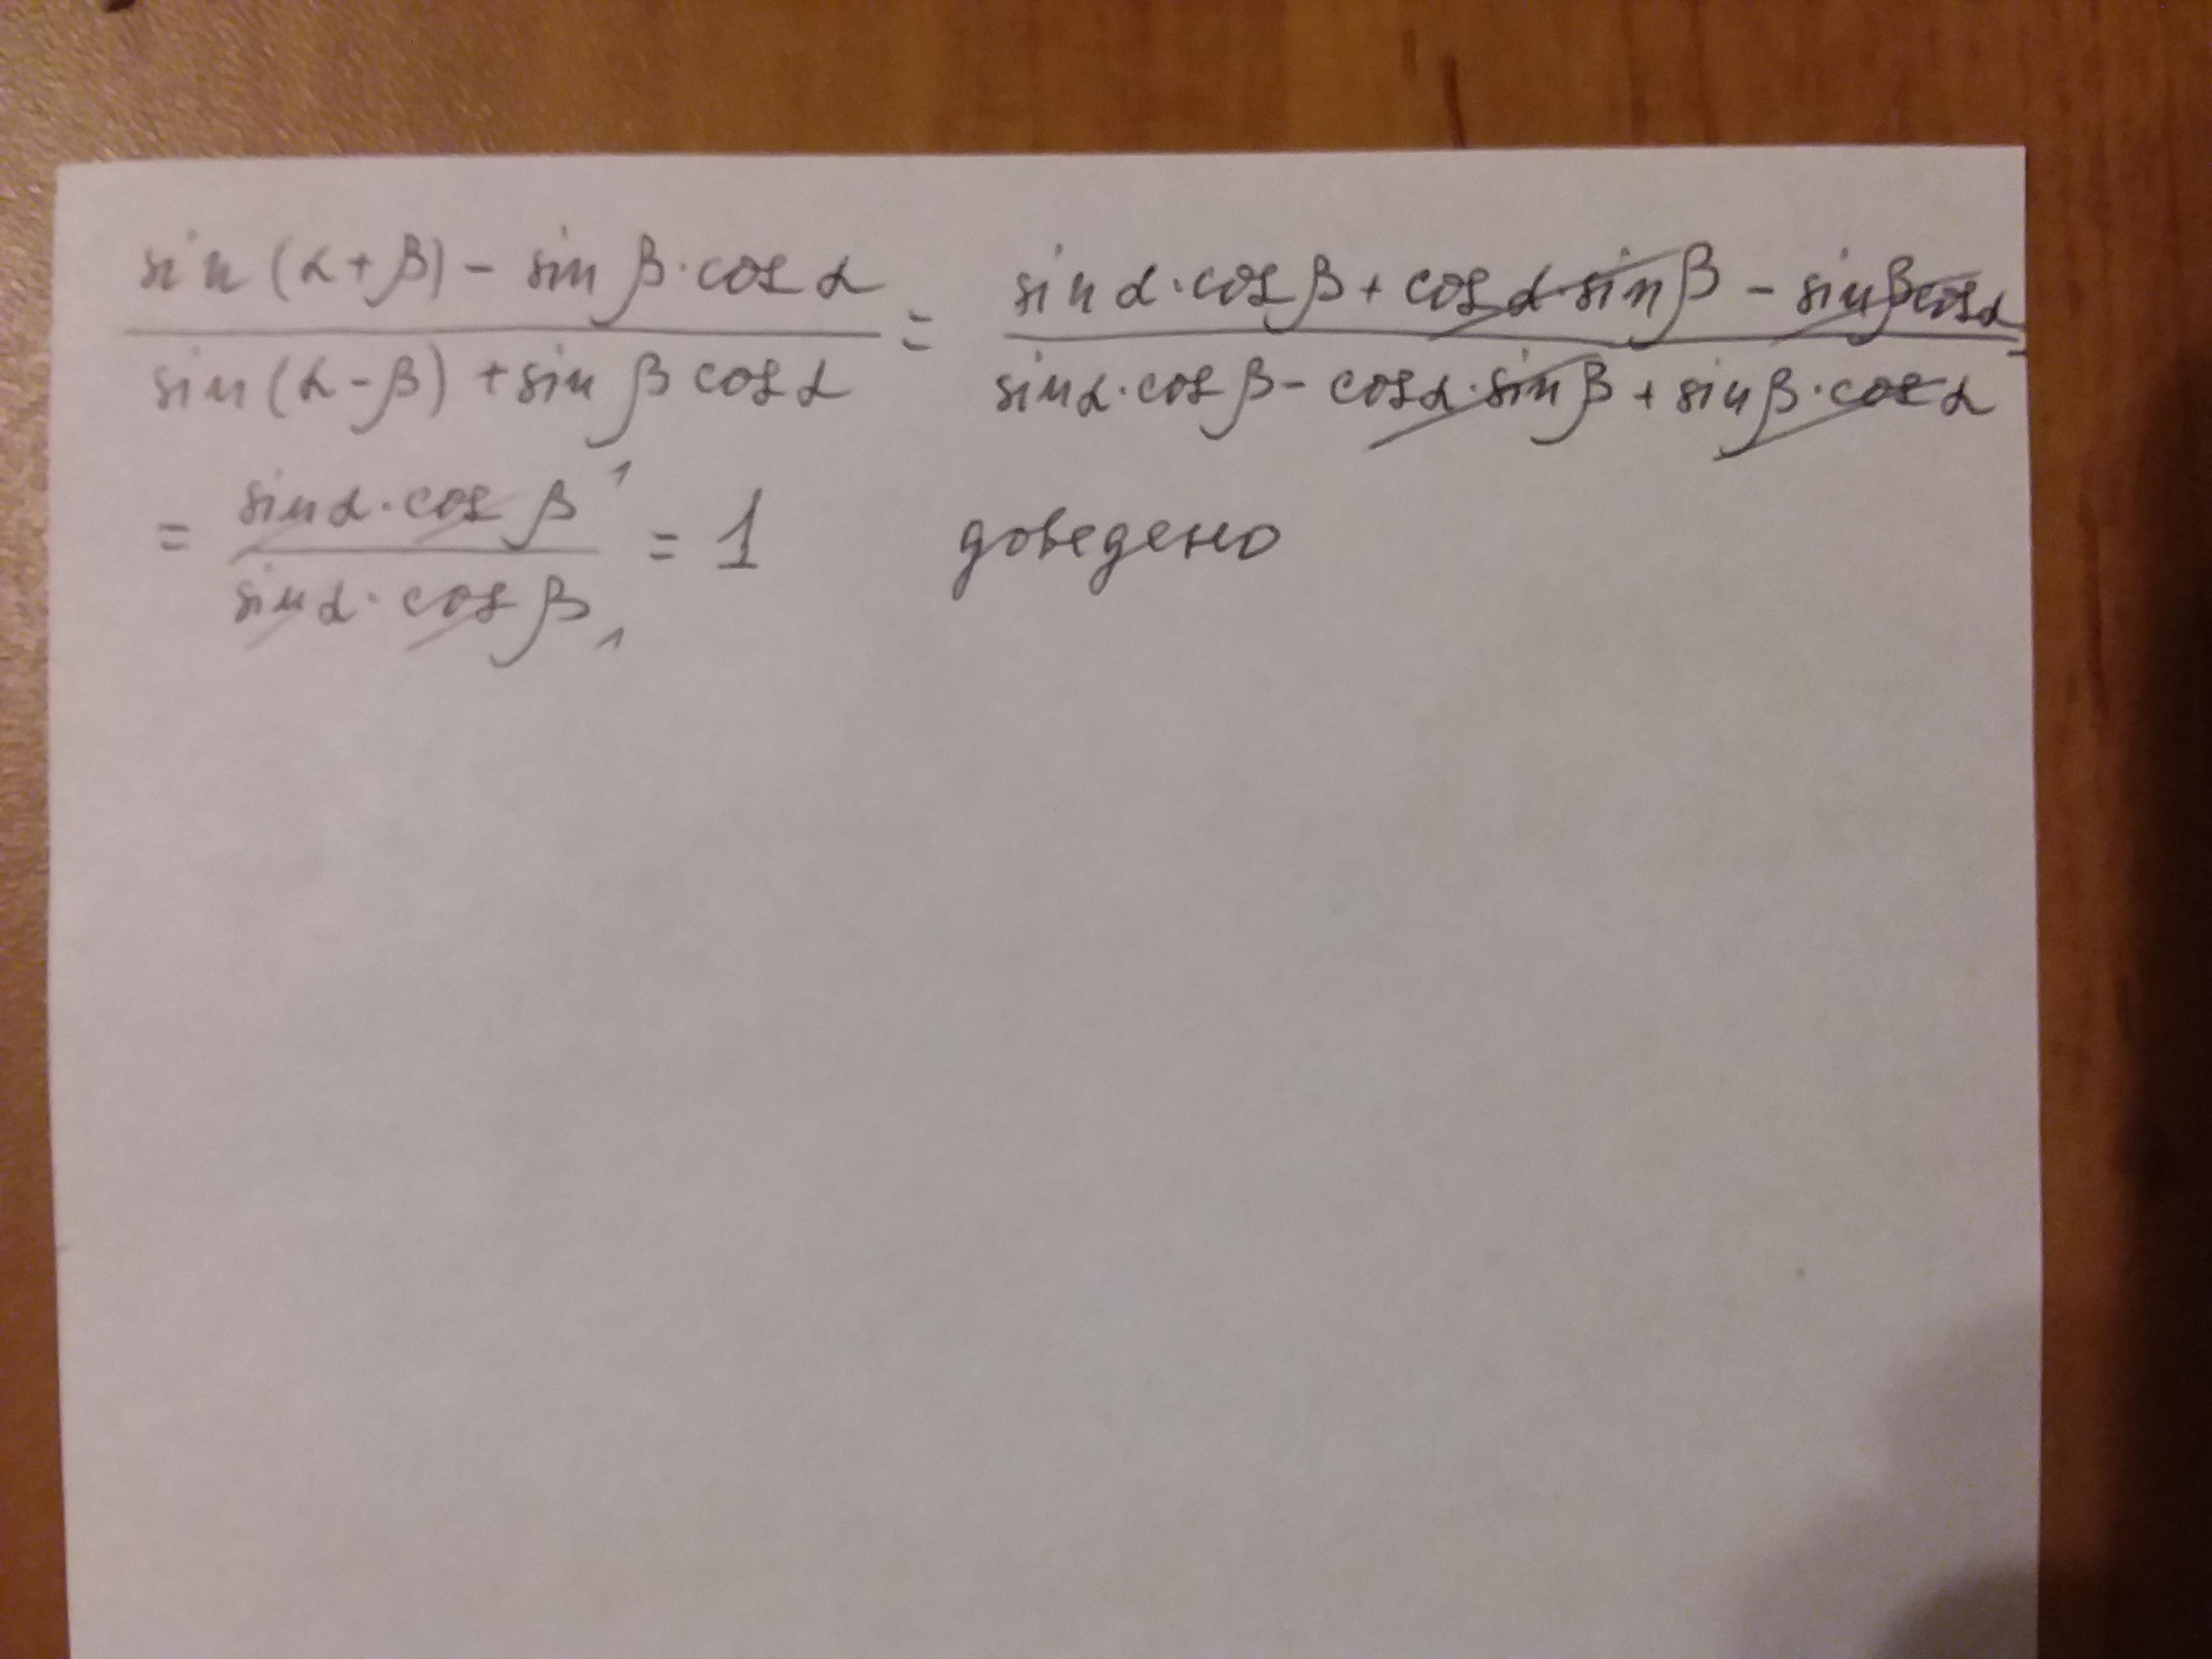 sin(α+β) - sin β·cos α / sin(α-β) + sin β cos α = sin α·cos β + cos α·sin β - sin β cos α / sin α·cos β - cos α·sin β + sin β·cos α =
= sin α·cos β 1 / sin α·cos β 1 = 1 доведено